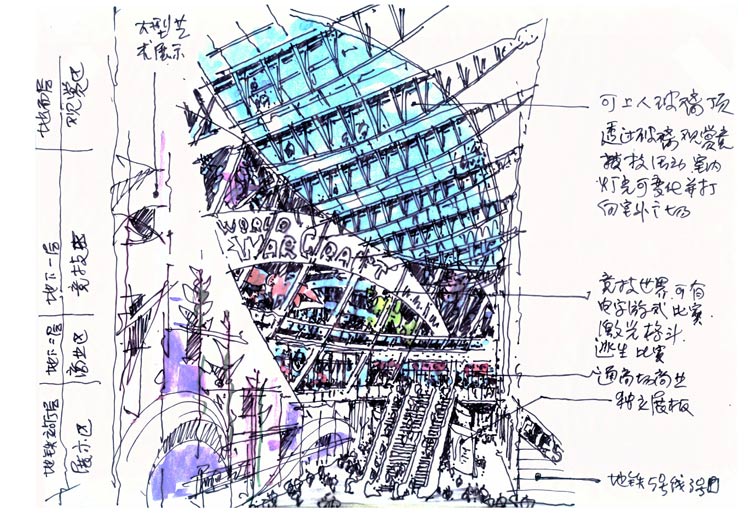 大型艺
术展示
地面层
观赏区
地下一层
竞技区
地下二层
商业区
地铁站厅层
展示区
WORLD
WARCRAFT
可上人玻璃顶
透过玻璃观赏竞
技活动 室内
灯光可变化并打
向室外广场
竞技世界.可有
电子游戏比赛
激光格斗
逃生比赛
通商场商业
独立展板
地铁5号线3号口